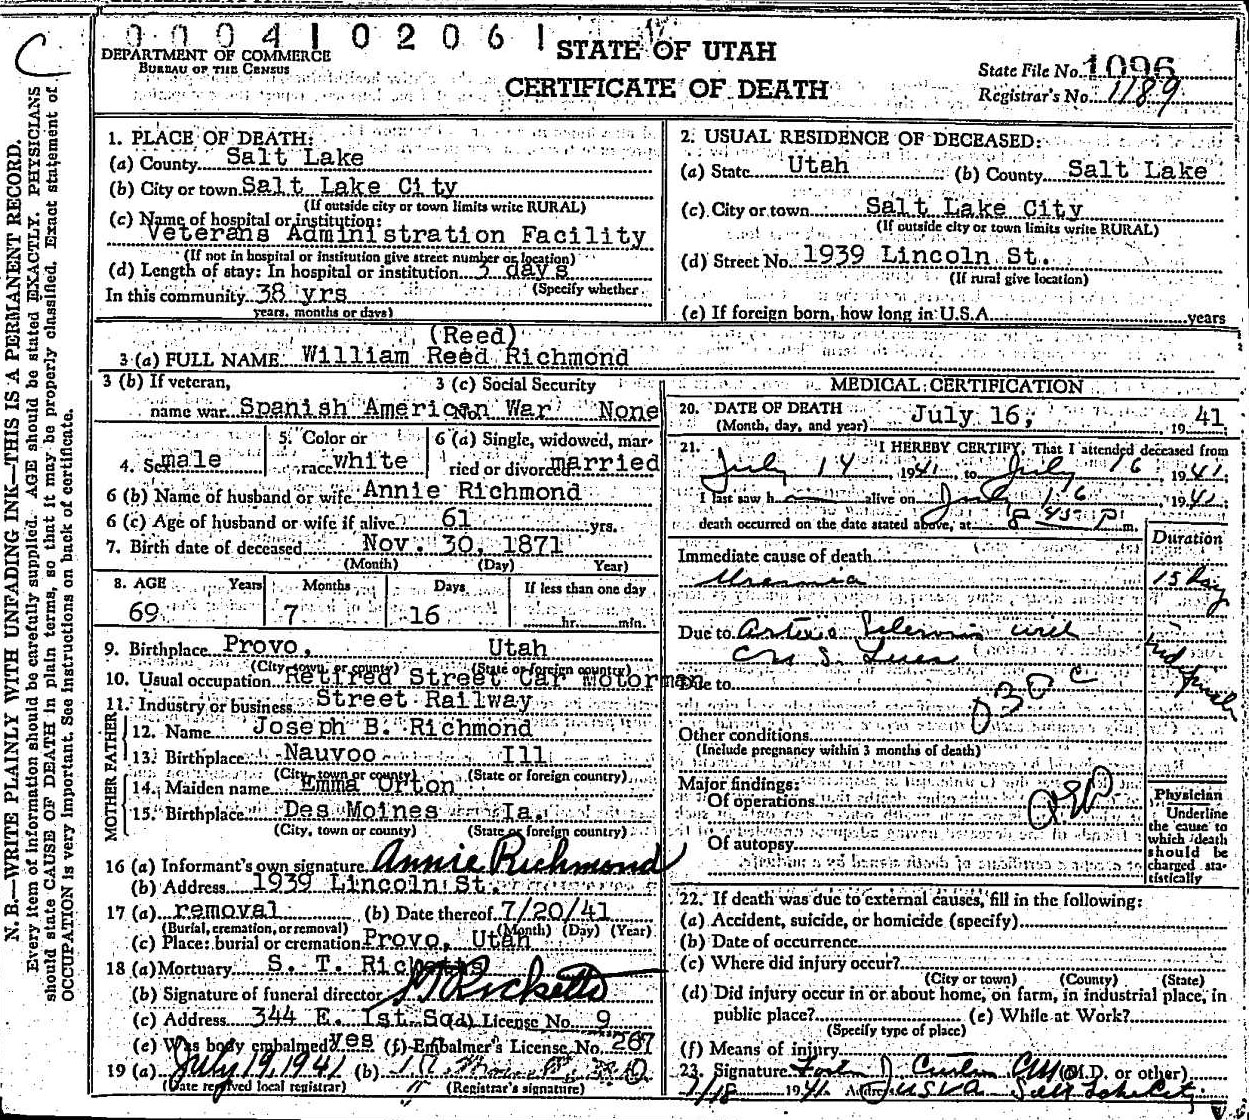 0004102061
DEPARTMENT OF COMMERCE
BUREAU OF THE CENSUS
STATE OF UTAH
CERTIFICATE OF DEATH
State File No. 1096
Registrar's No. 1189
C
N. B.—WRITE PLAINLY WITH UNFADING INK—THIS IS A PERMANENT RECORD.
Every item of information should be carefully supplied. AGE should be stated EXACTLY. PHYSICIANS
should state CAUSE OF DEATH in plain terms, so that it may be properly classified. Exact statement of
OCCUPATION is very important. See instructions on back of certificate.
1. PLACE OF DEATH:
(a) County Salt Lake
(b) City or town Salt Lake City
(If outside city or town limits write RURAL)
(c) Name of hospital or institution:
Veterans Administration Facility
(If not in hospital or institution give street number or location)
(d) Length of stay: In hospital or institution 3 days
(Specify whether
In this community 38 yrs
years, months or days)
2. USUAL RESIDENCE OF DECEASED:
(a) State Utah (b) County Salt Lake
(c) City or town Salt Lake City
(If outside city or town limits write RURAL)
(d) Street No. 1939 Lincoln St.
(If rural give location)
(e) If foreign born, how long in U.S.A. years
(Reed)
3 (a) FULL NAME William Reed Richmond
3 (b) If veteran, 3 (c) Social Security
name war Spanish American War No. None
4. Sex male 5. Color or race white 6 (a) Single, widowed, married or divorced married
6 (b) Name of husband or wife Annie Richmond
6 (c) Age of husband or wife if alive 61 yrs.
7. Birth date of deceased Nov. 30, 1871
(Month) (Day) Year)
8. AGE Years Months Days If less than one day
69 7 16 hr. min.
9. Birthplace Provo, Utah
(City, town, or county) (State or foreign country)
10. Usual occupation Retired Street Car Motorman
11. Industry or business Street Railway
FATHER
12. Name Joseph B. Richmond
13. Birthplace Nauvoo Ill
(City, town or county) (State or foreign country)
MOTHER
14. Maiden name Emma Orton
15. Birthplace Des Moines Ia.
(City, town or county) (State or foreign country)
16 (a) Informant's own signature Annie Richmond
(b) Address 1939 Lincoln St.
17 (a) removal (b) Date thereof 7/20/41
(Burial, cremation, or removal) (Month) (Day) (Year)
(c) Place: burial or cremation Provo, Utah
18 (a) Mortuary S. T. Ricketts
(b) Signature of funeral director S T Ricketts
(c) Address 344 E. 1st So. (d) License No. 9
(e) Was body embalmed yes (f) Embalmer's License No. 267
19 (a) July 19, 1941 (b)
(Date received local registrar) (Registrar's signature)
MEDICAL CERTIFICATION
20. DATE OF DEATH July 16, 19 41
(Month, day, and year)
21. I HEREBY CERTIFY, That I attended deceased from
July 14 1941, to July 16, 1941;
I last saw h alive on July 16 1941;
death occurred on the date stated above, at 8 45 P m.
Duration
Immediate cause of death
Uremia 15 day
Due to Arterio Sclerosis with
CNS Lues
Due to
030 c
Other conditions
(Include pregnancy within 3 months of death)
Major findings:
Of operations
Of autopsy
Physician
Underline
the cause to
which death
should be
charged sta-
tistically
22. If death was due to external causes, fill in the following:
(a) Accident, suicide, or homicide (specify)
(b) Date of occurrence
(c) Where did injury occur?
(City or town) (County) (State)
(d) Did injury occur in or about home, on farm, in industrial place, in
public place? (e) While at Work?
(Specify type of place)
(f) Means of injury
23. Signature (M.D. or other)
7/18 1941 Address USVA Salt Lake City